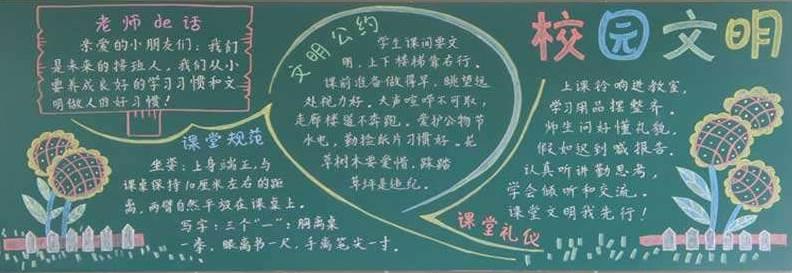 老师de话
亲爱的小朋友们：我们
是未来的接班人，我们从小
要养成良好的学习习惯和文
明做人的好习惯！
课堂规范
坐姿：上身端正，与
课桌保持10厘米左右的距
离，两臂自然平放在课桌上。
写字：三个“一”：胸离桌
一拳，眼离书一尺，手离笔尖一寸。
文明公约
学生课间要文
明，上下楼梯靠右行。
课前准备做得早，眺望远
处视力好。大声喧哗不可取，
走廊楼道不奔跑。爱护公物节
水电，勤捡纸片习惯好。花
草树木要爱惜，踩踏
草坪是违纪。
校园文明
上课铃响进教室，
学习用品摆整齐。
师生问好懂礼貌，
假如迟到喊报告。
认真听讲勤思考，
学会倾听和交流。
课堂文明我先行！
课堂礼仪